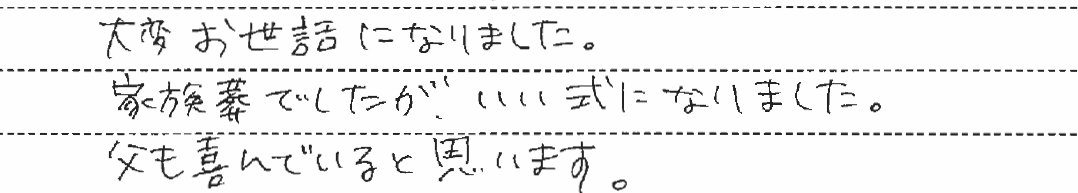 大変お世話になりました。
家族葬でしたが、いい式になりました。
父も喜んでいると思います。